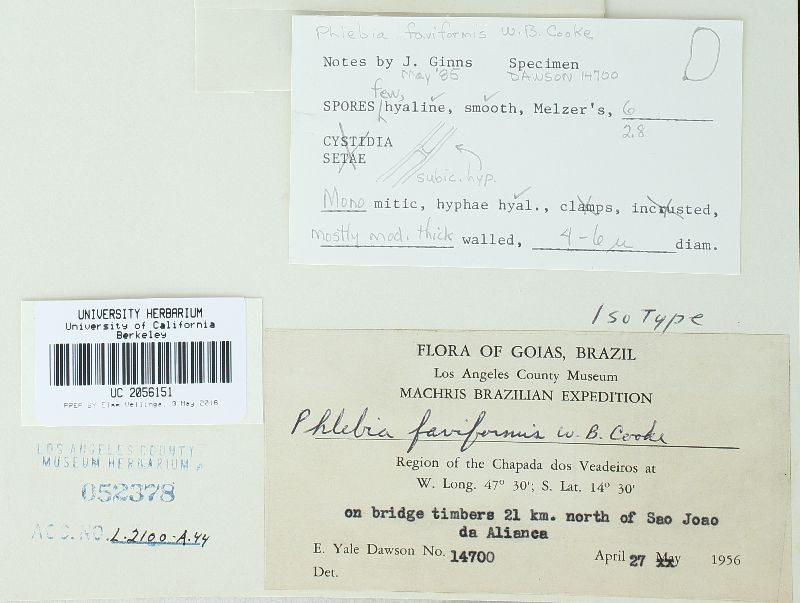 Phlebia faviformis W.B. Cooke
Notes by J. Ginns Specimen
May '85 DAWSON 14700
few,
SPORES hyaline, smooth, Melzer's, 6
2.8
CYSTIDIA
SETAE
subic. hyp.
Mono mitic, hyphae hyal., clamps, incrusted,
mostly mod. thick walled, 4-6 µ diam.
Iso Type
UNIVERSITY HERBARIUM
University of California
Berkeley
UC 2056151
PREP BY Else Vellinga, 3 May 2016
LOS ANGELES COUNTY
MUSEUM HERBARIUM
052378
ACC. NO. L-2100-A.44
FLORA OF GOIAS, BRAZIL
Los Angeles County Museum
MACHRIS BRAZILIAN EXPEDITION
Phlebia faviformis W. B. Cooke
Region of the Chapada dos Veadeiros at
W. Long. 47° 30'; S. Lat. 14° 30'
on bridge timbers 21 km. north of Sao Joao
da Alianca
E. Yale Dawson No. 14700 April 27 May 1956
Det.